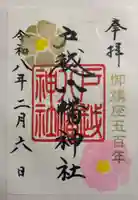 奉拝
御鎮座五百年
戸越八幡神社
戸越
神社
令和八年二月六日